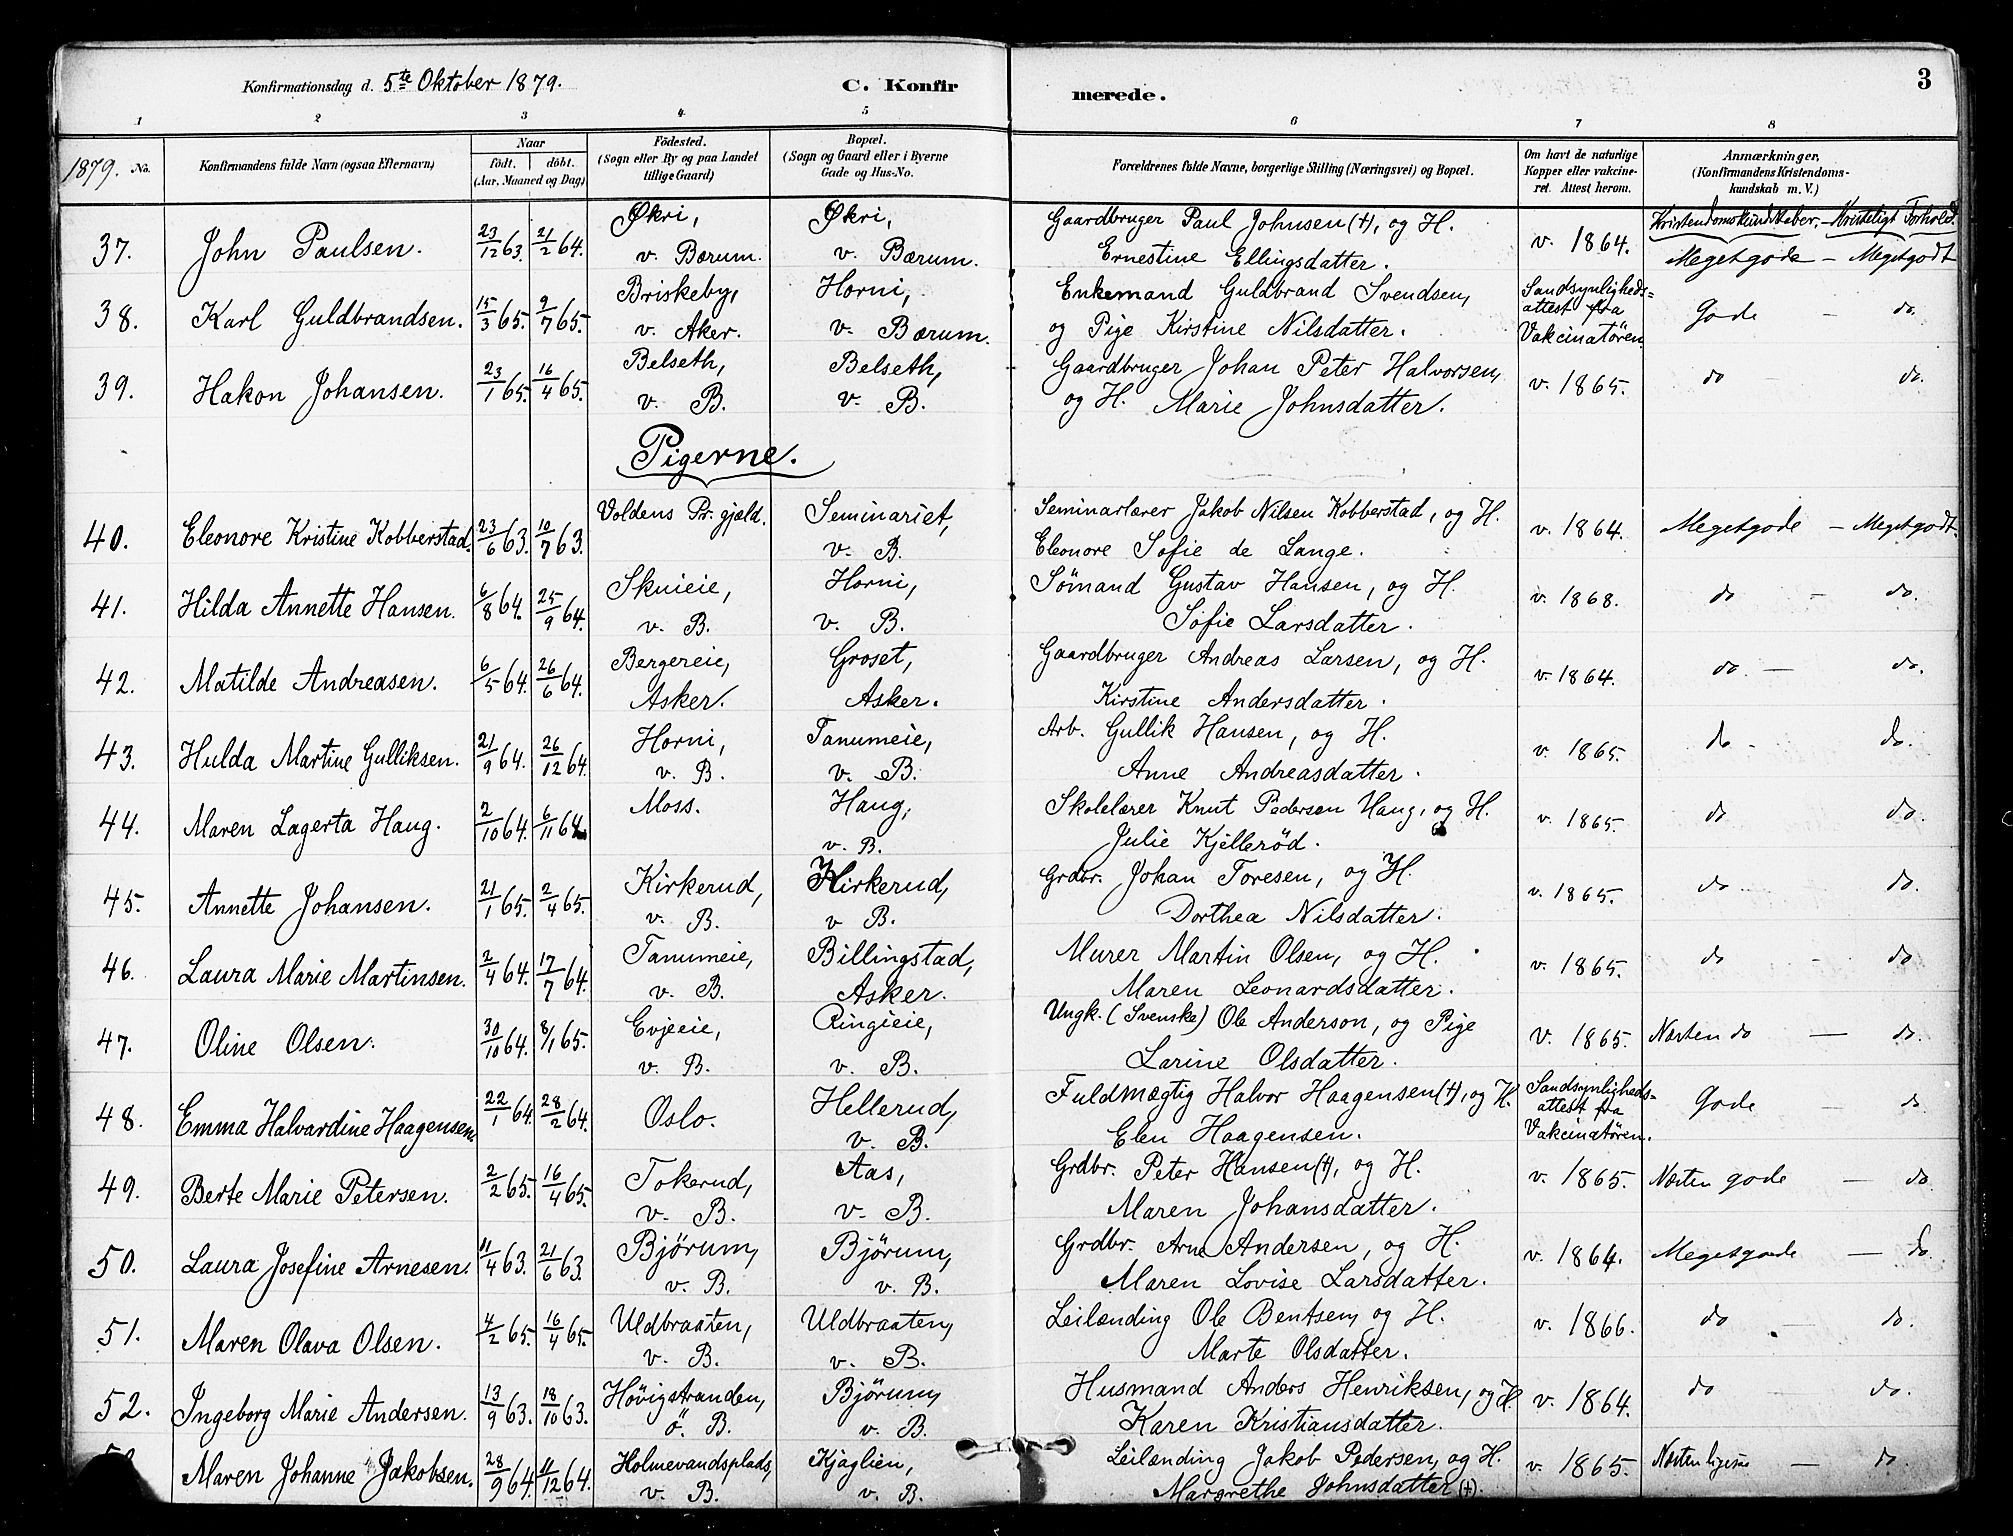 3
Konfirmationsdag d. 5te Oktober 1879.
C. Konfirmerede.
1 2 3 4 5 6 7 8
1879. No.
Konfirmandens fulde Navn (ogsaa Efternavn)
Naar
födt. döbt.
(Aar, Maaned og Dag)
Födested.
(Sogn eller By og paa Landet
tillige Gaard)
Bopæl.
(Sogn og Gaard eller i Byerne
Gade og Hus-No.
Forældrenes fulde Navne, borgerlige Stilling (Næringsvei) og Bopæl.
Om havt de naturlige
Kopper eller vakcine-
ret. Attest herom.
Anmærkninger,
(Konfirmandens Kristendoms-
kundskab m. V.)
Kristendomskundskaber. — Kristeligt Forhold.
37. John Paulsen. 23/12 63. 21/2 64. Økri, Økri, Gaardbruger Paul Johnsen (†), og H. v. 1864.
v. Bærum. v. Bærum. Ernestine Ellingsdatter. Megetgode — Megetgodt
38. Karl Guldbrandsen. 15/3 65. 9/7 65. Briskeby, Horni, Enkemand Guldbrand Svendsen, Sandsynligheds=
v. Aker. v. Bærum. og Pige Kirstine Nilsdatter. attest fra Gode — do.
Vakcinatøren.
39. Hakon Johansen. 23/1 65. 16/4 65. Belseth, Belseth, Gaardbruger Johan Peter Halvorsen, v. 1865. do — do.
v. B. v. B. og H. Marie Johnsdatter.
Pigerne.
40. Eleonore Kristine Kobberstad. 23/6 63. 10/7 63. Voldens Pr. gjæld. Seminariet, Seminarlærer Jakob Nilsen Kobberstad, og H. v. 1864. Megetgode — Megetgodt.
v. B. Eleonore Sofie de Lange.
41. Hilda Annette Hansen. 6/8 64. 25/9 64. Skuieie, Horni, Sømand Gustav Hansen, og H. v. 1868. do — do.
v. B. v. B. Sofie Larsdatter.
42. Matilde Andreasen. 6/5 64. 26/6 64. Bergereie, Groset, Gaardbruger Andreas Larsen, og H. v. 1864. do. — do.
Asker. Asker. Kirstine Andersdatter.
43. Hulda Martine Gulliksen. 21/9 64. 26/12 64. Horni, Tanumeie, Arb. Gullik Hansen, og H. v. 1865. do — do.
v. B. v. B. Anne Andreasdatter.
44. Maren Lagerta Haug. 2/10 64. 6/11 64. Moss. Haug, Skolelærer Knut Pedersen Haug, og H. v. 1865. do do.
v. B. Julie Kjellerød.
45. Annette Johansen. 21/1 65. 2/4 65. Kirkerud, Kirkerud, Grdbr. Johan Toresen, og H. v. 1865. do do.
v. B. v B. Dorthea Nilsdatter.
46. Laura Marie Martinsen. 2/4 64. 17/7 64. Tanumeie, Billingstad, Murer Martin Olsen, og H. v. 1865. do — do
v. B. Asker. Maren Leonardsdatter.
47. Oline Olsen. 30/10 64. 8/1 65. Evjeeie, Ringieie, Ungk. (Svenske) Ole Anderson, og Pige v. 1865. Næsten do — do.
v. B. v. B. Larine Olsdatter.
48. Emma Halvardine Haagensen. 22/1 64. 28/2 64. Oslo. Hellerud, Fuldmægtig Halvor Haagensen (†), og H. Sandsynligheds=
v. B. Elen Haagensen. attest fra Gode — do
Vakcinatøren.
49. Berte Marie Petersen. 2/2 65. 16/4 65. Tokerud, Aas, Grdbr. Peter Hansen (†), og H. v. 1865. Næsten gode — do.
v. B. v. B. Maren Johansdatter.
50. Laura Josefine Arnesen. 11/4 63. 21/6 63. Bjørum, Bjørum, Grdbr. Arne Andersen, og H. v. 1864. Megetgode — do.
v. B. v. B. Maren Lovise Larsdatter.
51. Maren Olava Olsen. 4/2 65. 16/4 65. Uldbraaten, Uldbraaten, Leilænding Ole Bentsen, og H. v. 1866. do — do.
v. B. v. B. Marte Olsdatter.
52. Ingeborg Marie Andersen. 13/9 63. 18/10 63. Høvigstranden, Bjørum, Husmand Anders Henriksen, og H. v. 1864. do — do.
ö. B. v. B. Karen Kristiansdatter.
Maren Johanne Jakobsen. 28/9 64. 11/12 64. Holmevandsplads, Kjaglien, Leilænding Jakob Pedersen, og H. v. 1865. Næsten — do.
v. B. v. B. Margrethe Johnsdatter (†).